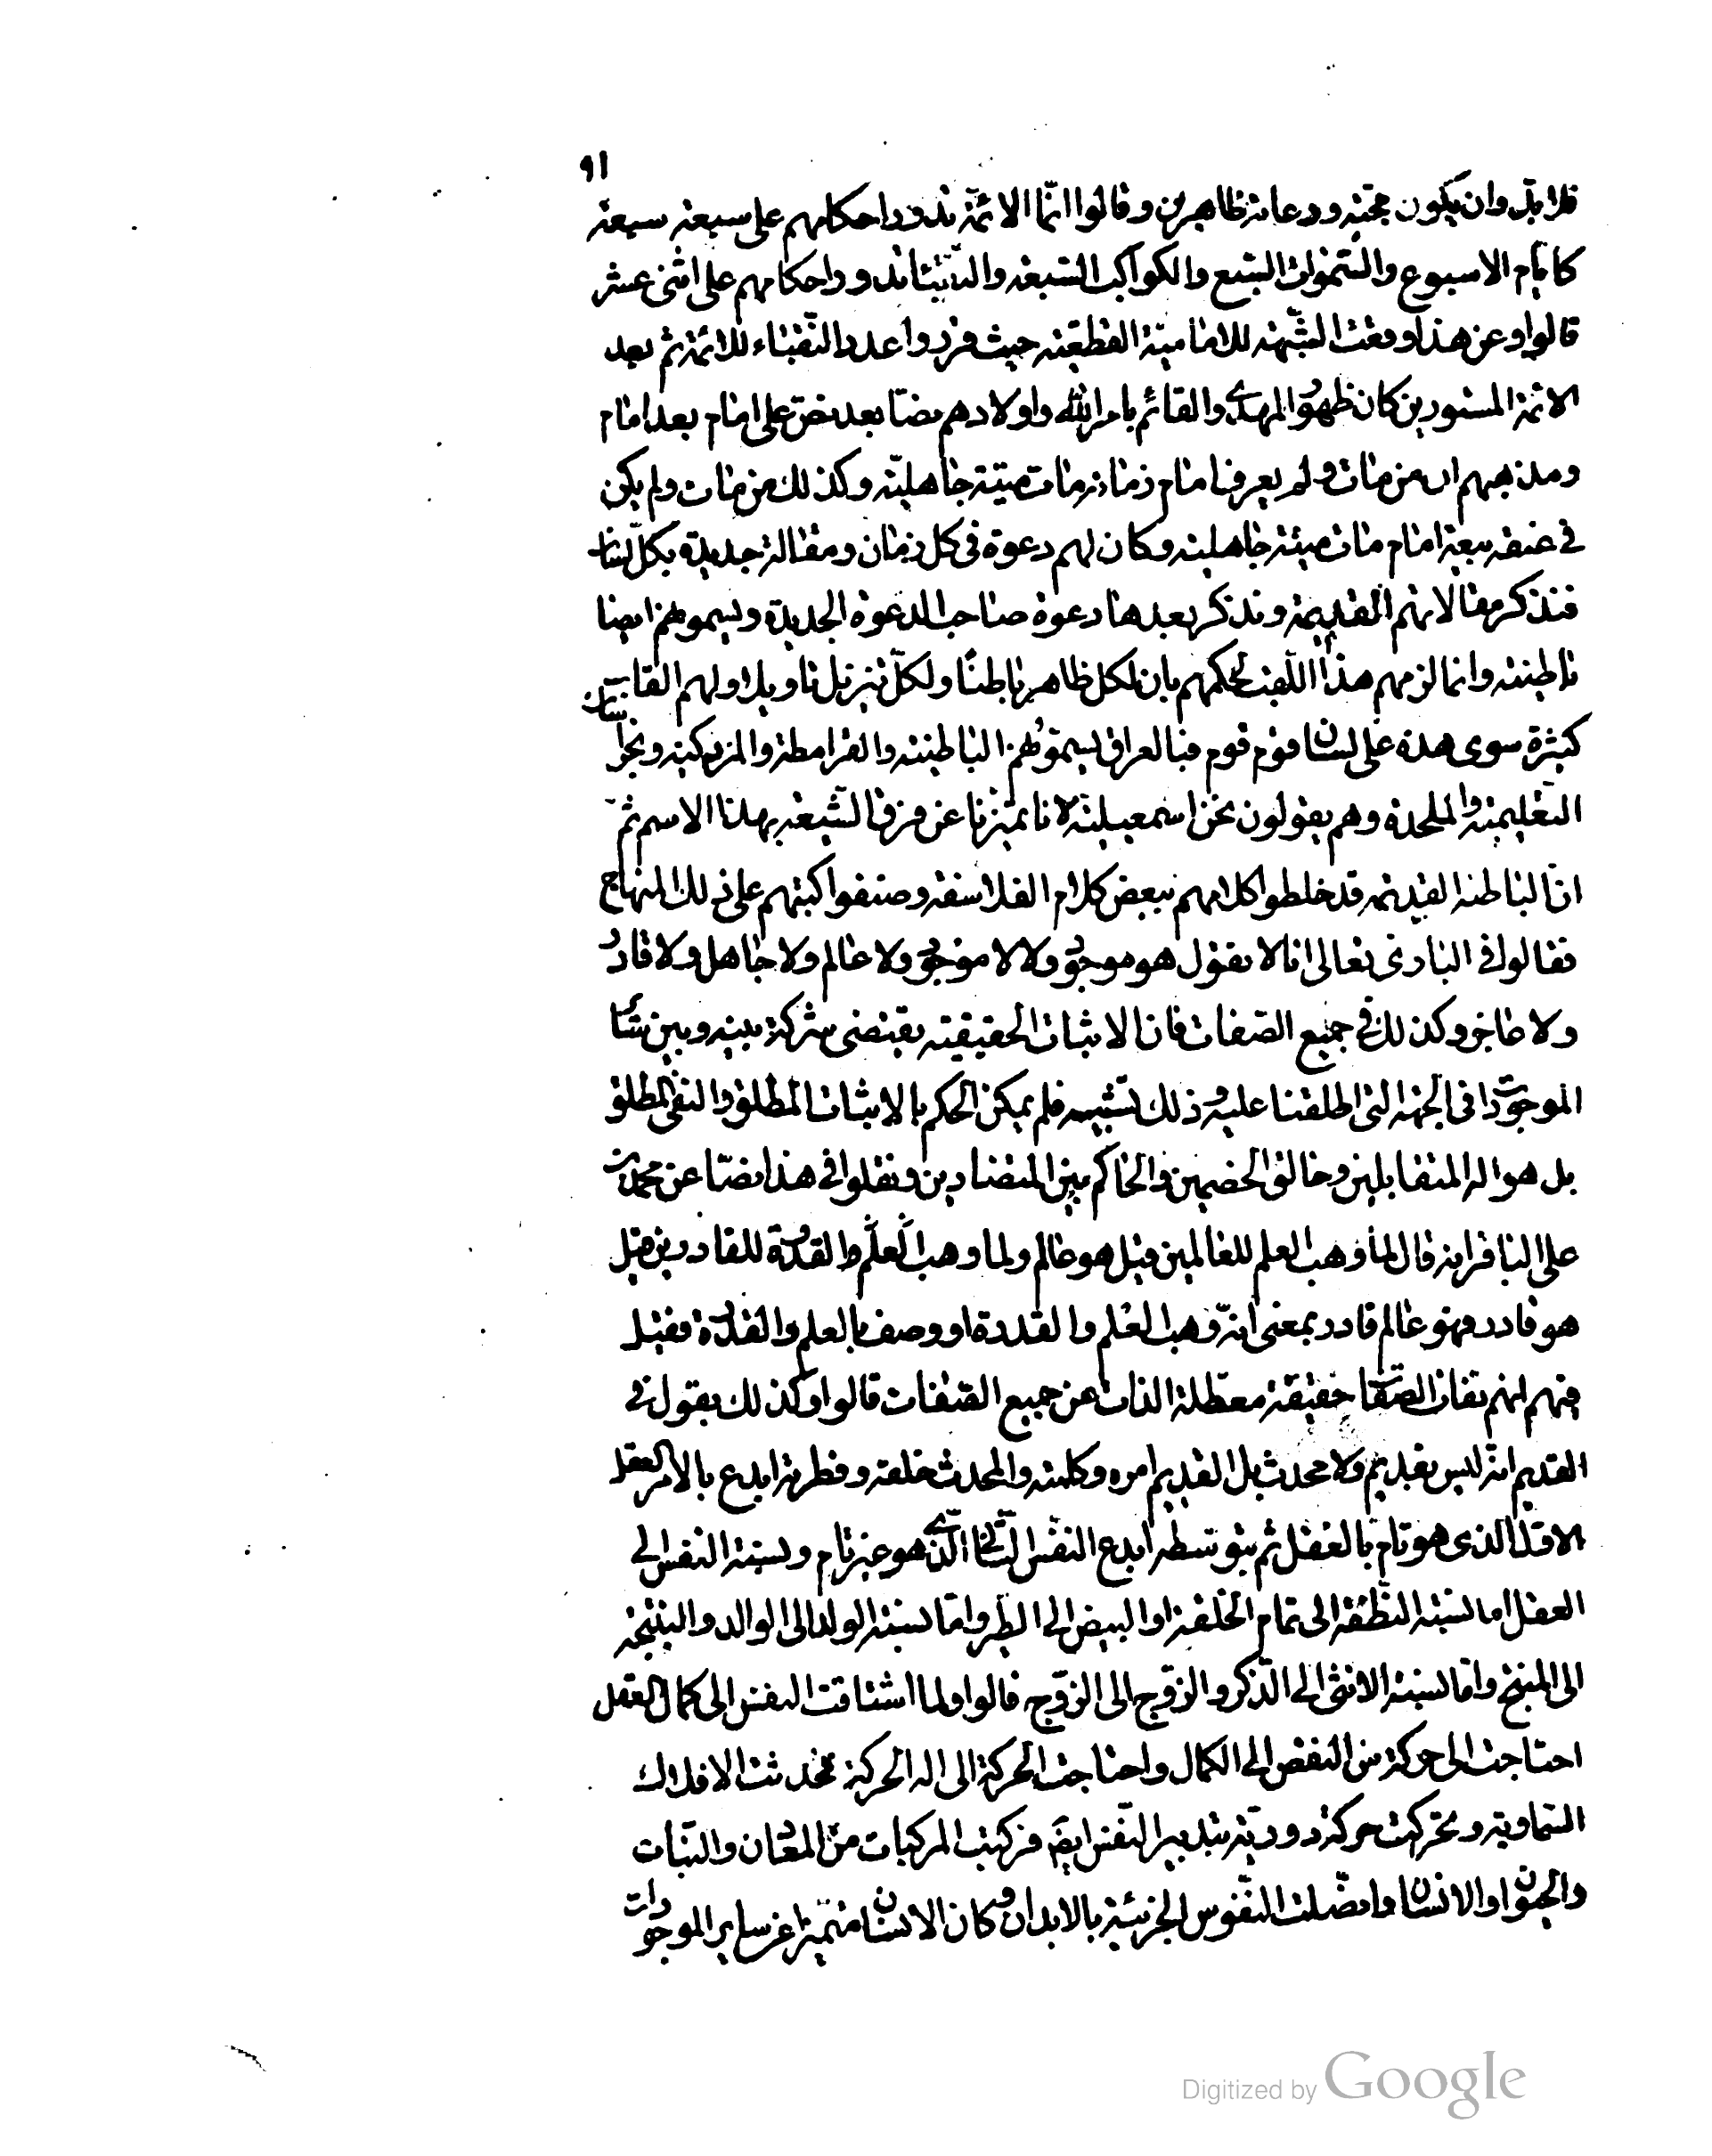 ٩١
فلا بدّ وان يكون حجته ودعاته ظاهرين وقالوا انّما الائمّة تدور احكامهم على سبعة سبعة
كايّام الاسبوع والسّموات السّبع والكواكب السّبعة والنّقباء تدور احكامهم على اثنى عشر
قالوا وعن هذا وقعت الشّبهة للاماميّة القطعيّة حيث قرروا عدد النّقباء للائمة ثم بعد
الائمة المستورين كان ظهور المهدى والقائم بامر الله واولادهم نصّا بعد نصّ على امام بعد امام
ومذهبهم ان من مات ولم يعرف امام زمانه مات ميتة جاهليّة وكذلك من مات ولم يكن
فى عنقه بيعة امام مات ميتة جاهلية وكان لهم دعوة فى كل زمان ومقالة جديدة بكلّ لسان
فنذكر مقالاتهم القديمة ونذكر بعدها دعوة صاحب الدعوة الجديدة ويسموهم ايضا
باطنية وانما لزمهم هذا اللقب لحكمهم بان لكل ظاهر باطنًا ولكلّ تنزيل تاويلا ولهم القاب
كثيرة سوى هذه على لسان قوم قوم فبالعراق يسمّونهم الباطنية والقرامطة والمزدكية وبخراسان
التعليمية والملحدة وهم يقولون نحن اسمعيلية لانا تميزنا عن فرق الشّيعة بهذا الاسم ثمّ
انّ الباطنة القديمة قد خلطوا كلامهم ببعض كلام الفلاسفة وصنفوا كتبهم على ذلك المنهاج
فقالوا فى البارى تعالى انا لا نقول هو موجود ولا لا موجود ولا عالم ولا جاهل ولا قادر
ولا عاجز وكذلك فى جميع الصّفات فان الاثبات الحقيقية يقتضى شركة بينه وبين سائر
الموجودات فى الجهة التى اطلقنا عليه وذلك تشبيه فلم يمكن الحكم بالاثبات المطلق والنفى المطلق
بل هو اله المتقابلين وخالق الخصمين والحاكم بين المتضادين ونقلوا فى هذا نصّا عن محمد بن
على الباقر انه قال لما وهب العلم للعالمين قيل هو عالم ولما وهب العلم والقدرة للقادرين قيل
هو قادر فهو عالم قادر بمعنى انه وهب العلم والقدرة او وصف بالعلم والقدرة فقيل
فيهم انهم نفاة الصّفات حقيقة معطلة الذات عن جميع الصّفات قالوا وكذلك نقول فى
القديم انه ليس بقديم ولا محدث بل القديم امره وكلمته والمحدث خلقه وفطرته ابدع بالامر العقل
الاول الذى هو تام بالفعل ثم بتوسطه ابدع النفس التالى الذى هو غير تام ونسبة النفس الى
العقل اما نسبة النّطفة الى تمام الخلقة او البيض الى الطير وامّا نسبة الولد الى الوالد والنتيجة
الى المنتج وامّا نسبة الانثى الى الذّكر والزّوج الى الزّوج قالوا ولما اشتاقت النفس الى كمال العقل
احتاجت الى حركة من النقص الى الكمال واحتاجت الحركة الى اله الحركة فحدثت الافلاك
السّماوية وتحركت حركة دورية بتدبير النّفس ايضًا فركبت المركبات من المعادن والنّبات
والحيوان والانسان واتصّلت النّفوس الجزئية بالابدان وكان الانسان متميّزا عن ساير الموجودات
Digitized by Google